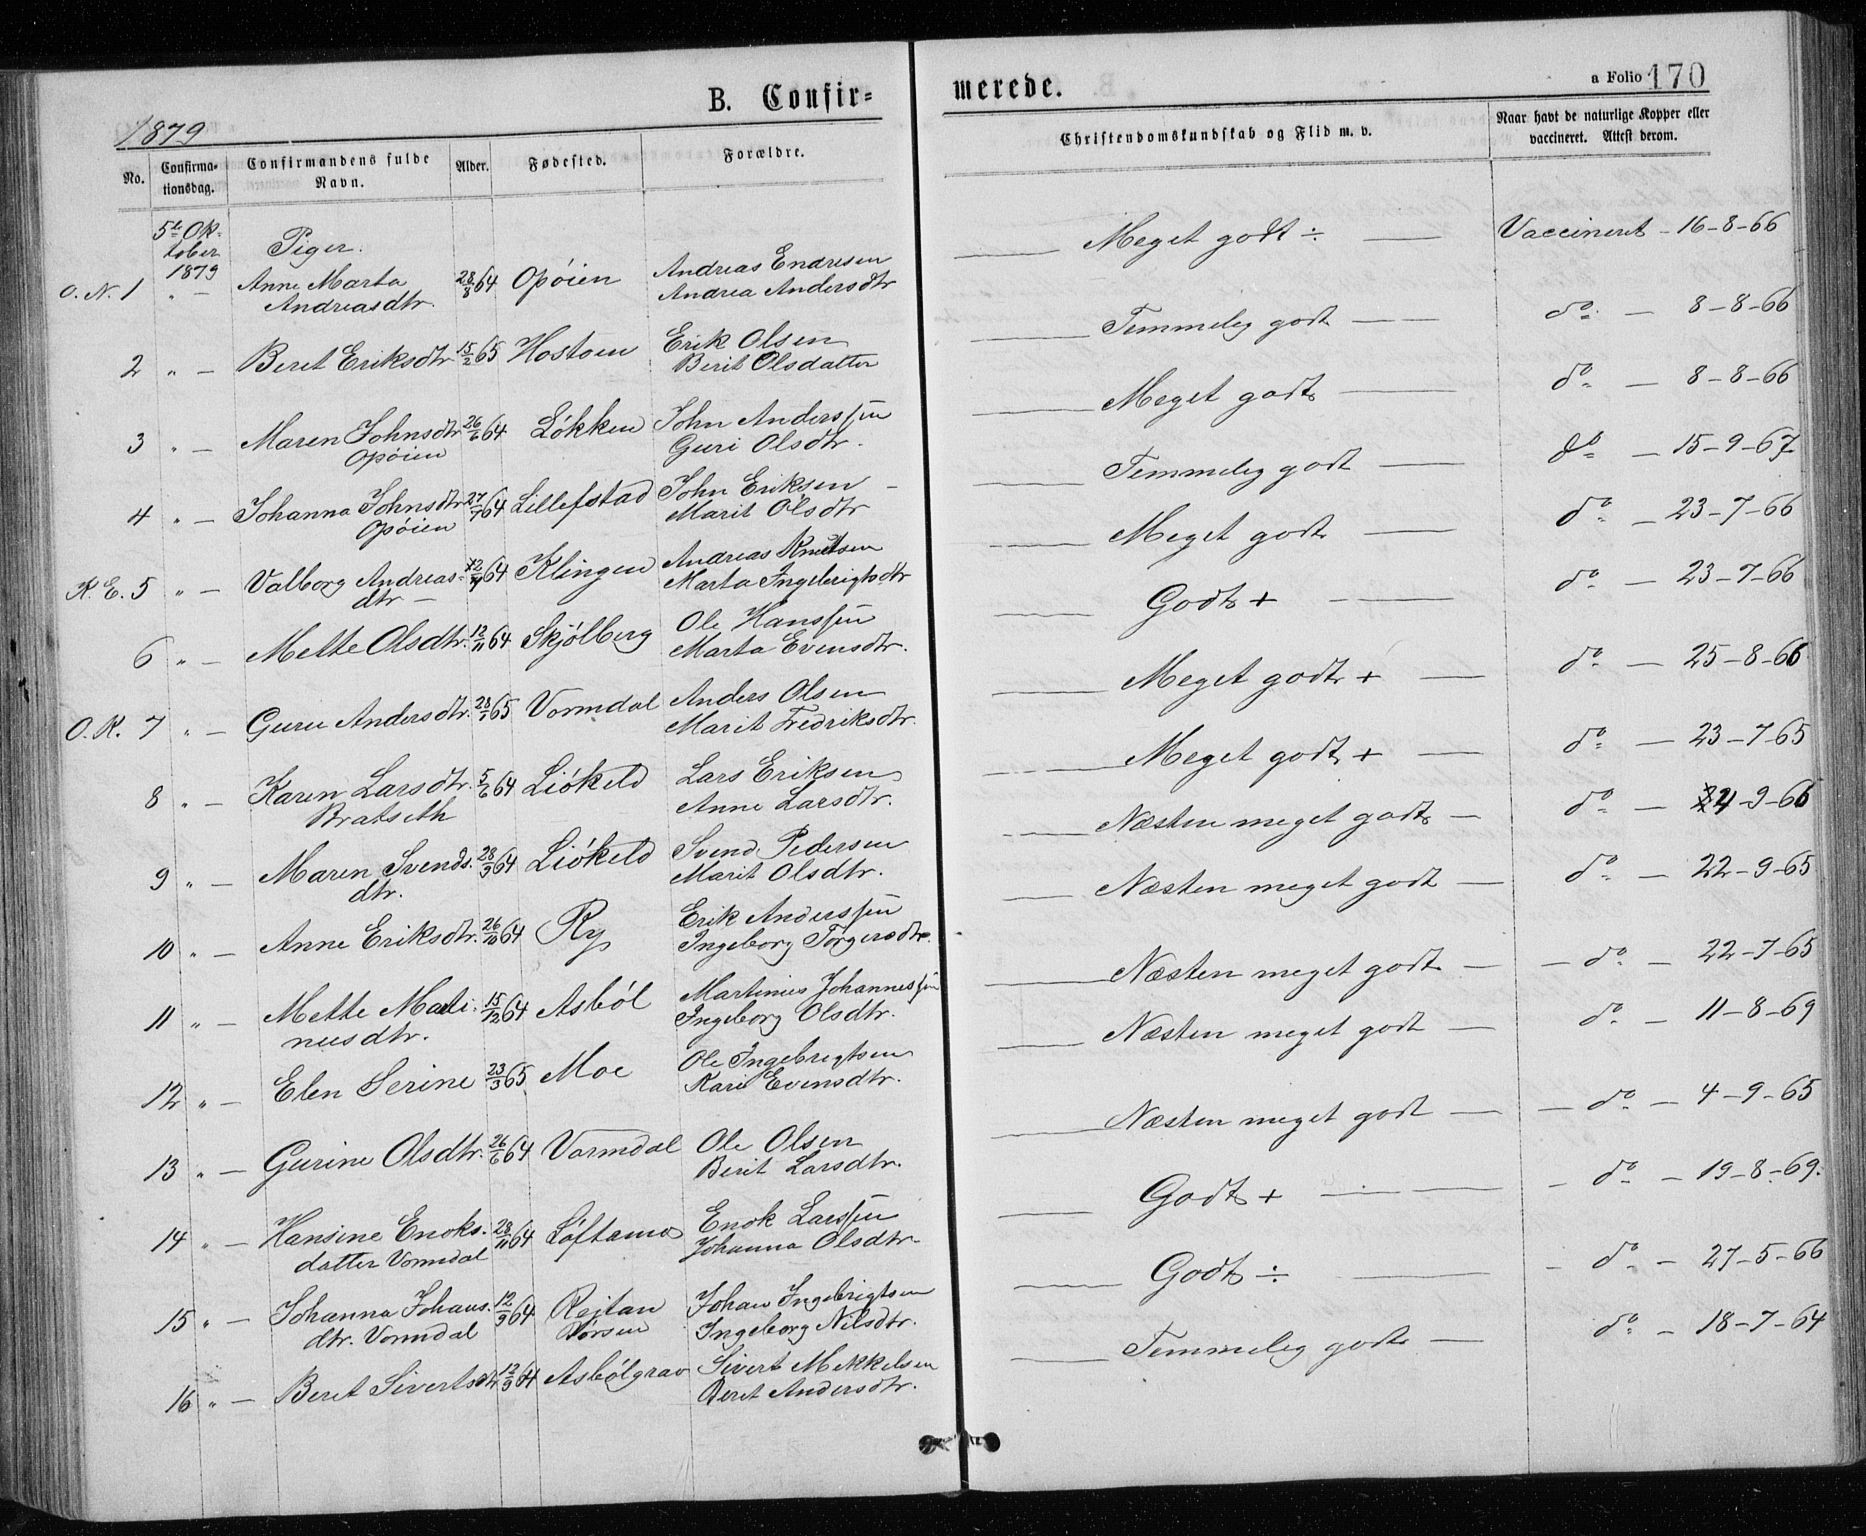 B. Confir=
merede.
a Folio 170
1879
No.
Confirma-
tionsdag.
Confirmandens fulde
Navn.
Alder.
Fødested.
Forældre.
Christendomskundskab og Flid m. v.
Naar havt de naturlige Kopper eller
vaccineret. Attest derom.
5te Ok-
tober
1879
Piger.
O. N. 1 " — Anne Marta 28/8 64 Opøien Andreas Endresen Meget godt ÷ Vaccineret - 16-8-66
Andreasdtr. Andrea Andersdtr
2 " — Beret Eriksdtr 15/2 65 Hostoen Erik Olsen Temmelig godt do — 8-8-66
Berit Olsdatter
3 " — Maren Johnsdtr 26/6 64 Løkken John Anderssen Meget godt do — 8-8-66
Opøien Guri Olsdtr.
4 " — Johanna Johnsdtr 27/7 64 Lillefstad John Eriksen Temmelig godt do — 15-9-67
Opøien Marit Olsdtr
K. E. 5 " — Valborg Andreas- 64 Klingen Andreas Knutsen Meget godt do — 23-7-66
dtr — Marta Ingebrigtsdtr
6 " — Mette Olsdtr. 12/11 64 Skjølberg Ole Hanssen Godt + do — 23-7-66
Marta Evensdtr.
O. K. 7 " — Guru Andersdtr. 28/1 65 Vormdal Anders Olsen Meget godt + do — 25-8-66
Marit Fredriksdtr.
8 " — Karen Larsdtr. 5/6 64 Liøkeld Lars Eriksen Meget godt + do — 23-7-65
Bratseth Anne Larsdtr.
9 " — Maren Svends. 28/9 64 Liøkeld Svend Pedersen Næsten meget godt do — 4-9-66
dtr. Marit Olsdtr.
10 " — Anne Eriksdtr. 26/10 64 Ry Erik Anderssen Næsten meget godt do — 22-9-65
Ingeborg Torgersdtr.
11 " — Mette Marti- 15/12 64 Asbøl Martinus Johannessen Næsten meget godt — do — 22-7-65
nusdtr. Ingeborg Olsdtr.
12 " — Elen Serine 23/3 65 Moe Ole Ingebrigtsen Næsten meget godt do — 11-8-69
Kari Evensdtr.
13 " — Gurine Olsdtr. 26/6 64 Vormdal Ole Olsen Næsten meget godt — do — 4-9-65
Berit Larsdtr.
14 " — Hansine Enoks. 28/11 64 Løftamo Enok Larssen Godt + — do — 19-8-69.
datter Vormdal Johanna Olsdtr
15 " — Johanna Johans. 12/9 64 Rejtan Johan Ingebrigtsen Godt ÷ — do — 27-5-66
dtr. Vormdal Børsen Ingeborg Nilsdtr.
16 " — Beret Sivertsdtr 12/9 64 Asbølgrav Sivert Mekkelsen Temmelig godt do — 18-7-64
Beret Andersdtr.